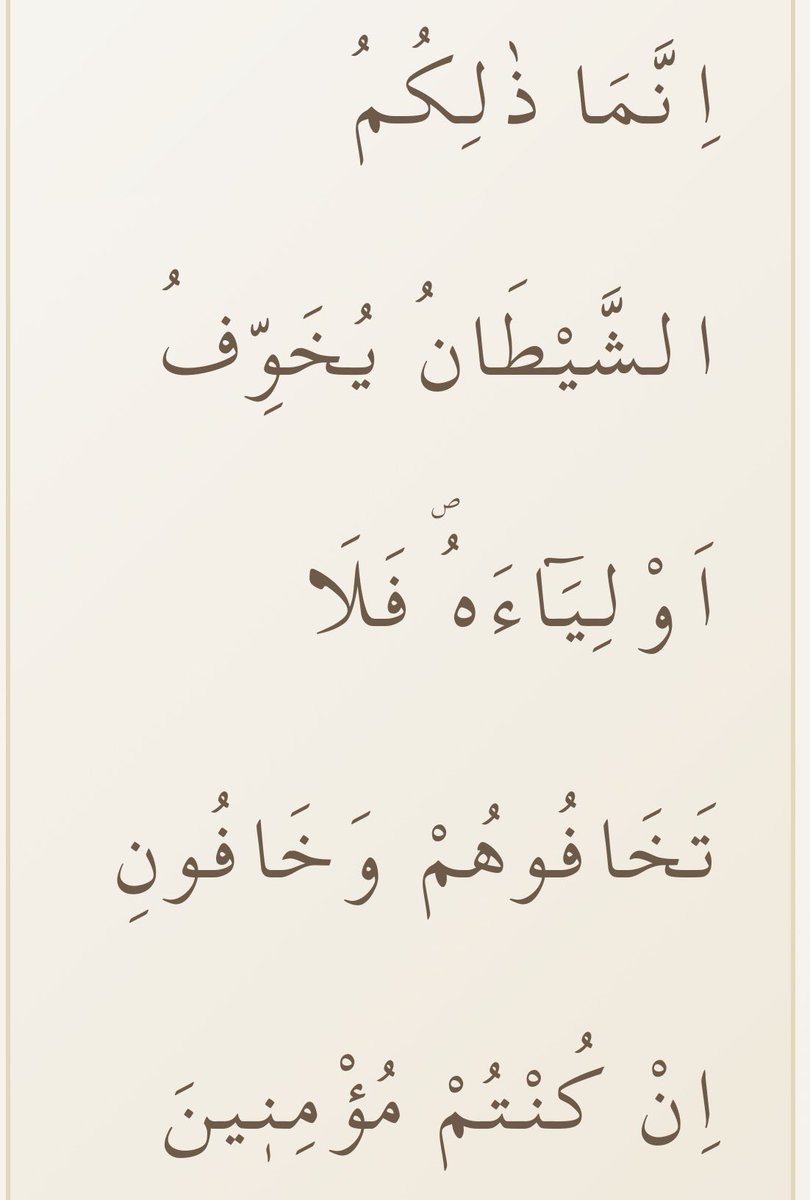 اِنَّمَا ذٰلِكُمُ
الشَّيْطَانُ يُخَوِّفُ
اَوْلِيَٓاءَهُۖ فَلَا
تَخَافُوهُمْ وَخَافُونِ
اِنْ كُنْتُمْ مُؤْمِن۪ينَ